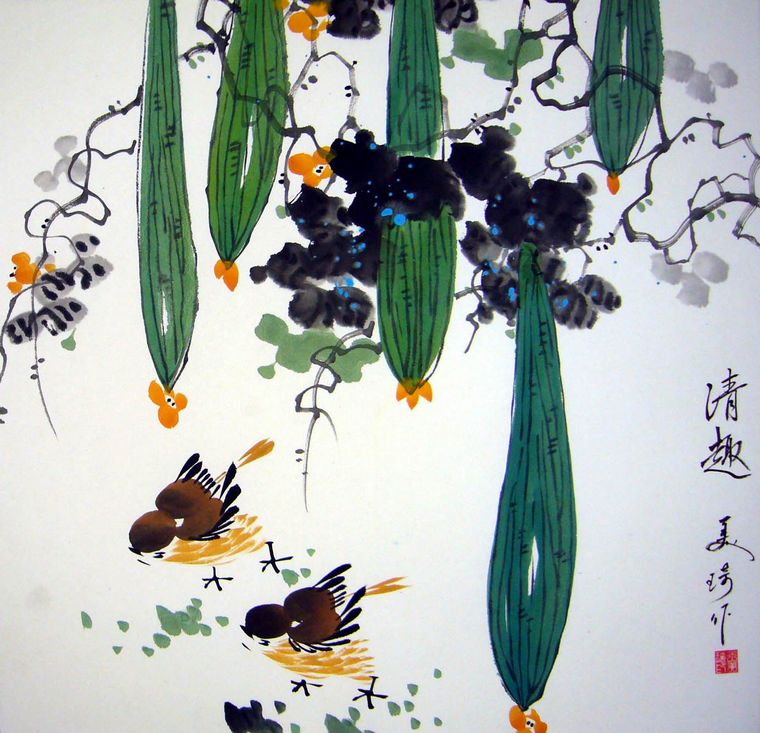 清趣
美琦作